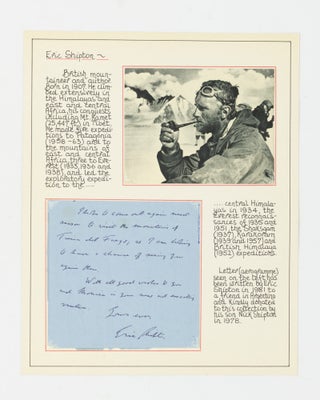 Eric Shipton ~
British moun-
taineer and author
born in 1907. He clim-
bed extensively in
the Himalayas and
east and central
Africa, his conquests
including Mt. Kamet
(25,447 ft) in Tibet.
He made five expedi-
tions to Patagonia
(1958-63) also to
the mountains of
east and central
Africa, three to Ever-
est (1933, 1936 and
1938), and led the
exploratory expedi-
tion to the ....
.... central Himala-
yas in 1934, the
Everest reconnais-
sances of 1935 and
1951, the Shaksgam
(1937), Karakoram
(1939 and 1957) and
British Himalaya
(1952) expeditions.
Letter (aerogramme)
seen on the left has
been written by Eric
Shipton in 1961 to
a friend in
and kindly donated
to this collection by
his son Nick Shipton
in 1978.
to come out again next
season to visit the mountains of
Tierra del Fuego, so I am hoping
to have a chance of seeing you
again then.
With all good wishes to you
and
Yours ever
Eric Shipton